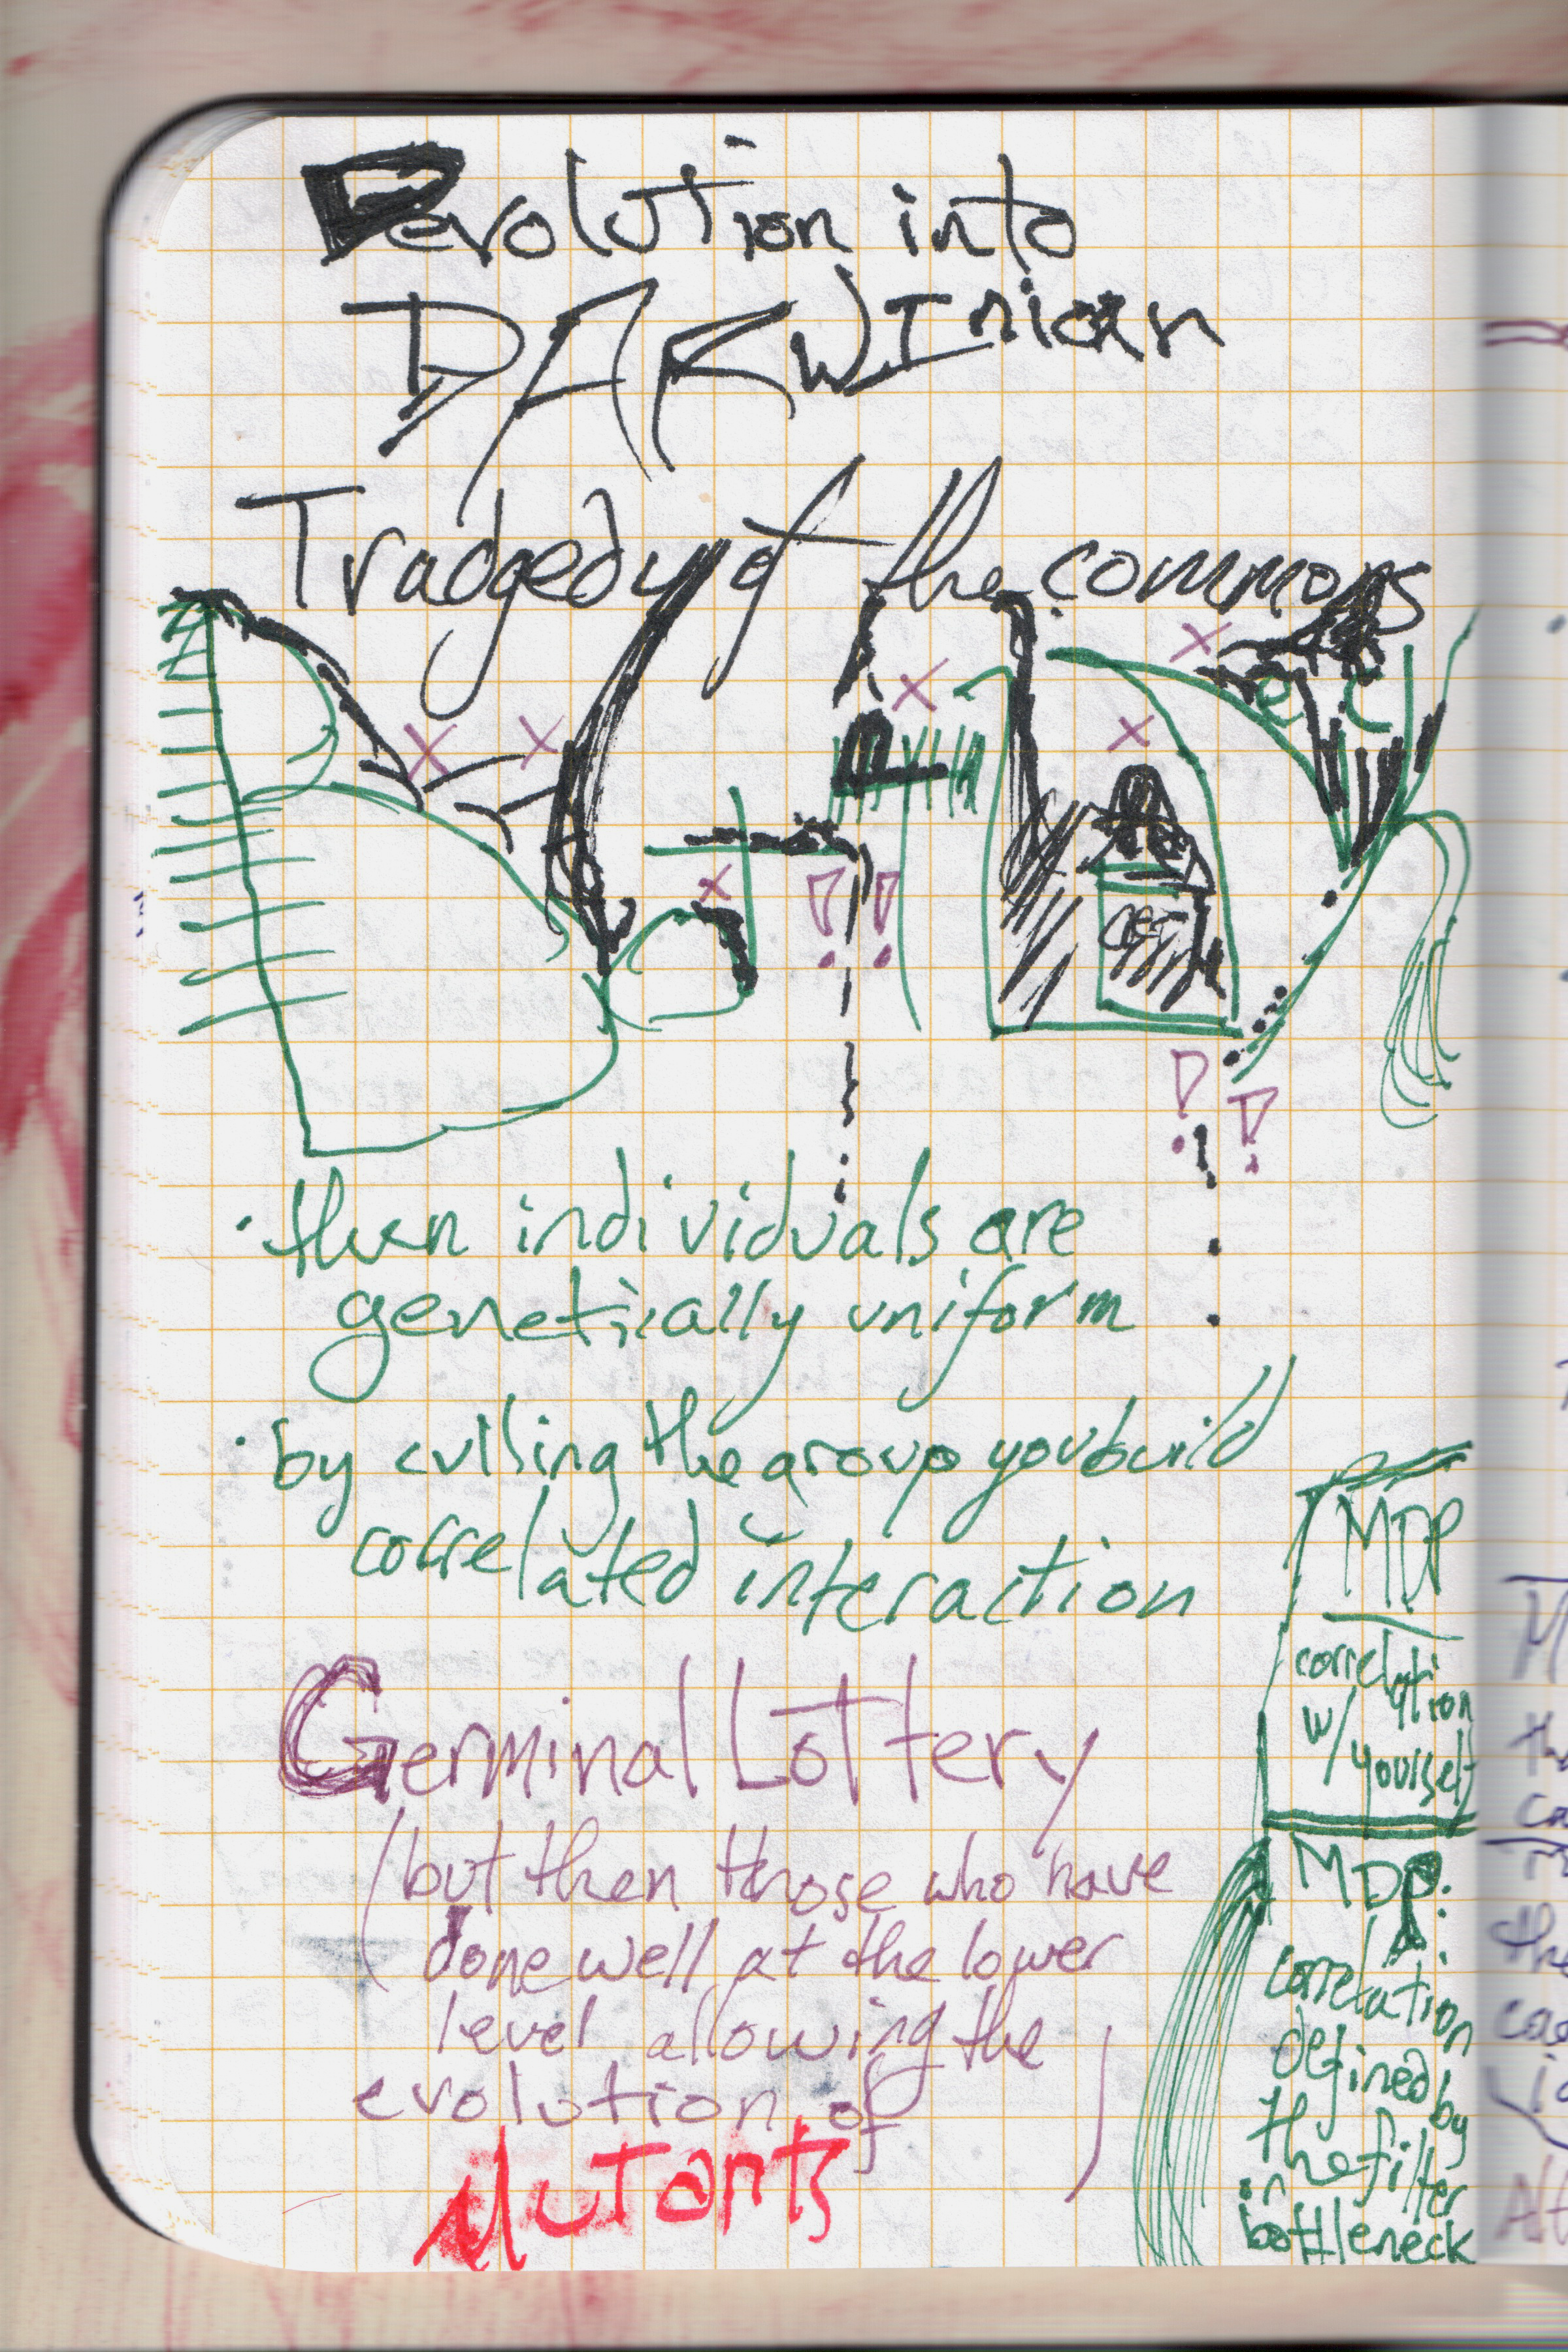 Devolution into
DARWInian
Tradgedy of the commons
· then individuals are
genetically uniform
· by culling the group you build
correlated interaction
Germinal Lottery
(but then those who have
done well at the lower
level allowing the
evolution of )
Mutants
MDP
correlation
w/
yourself
MDP:
correlation
defined by
the filter
in
bottleneck